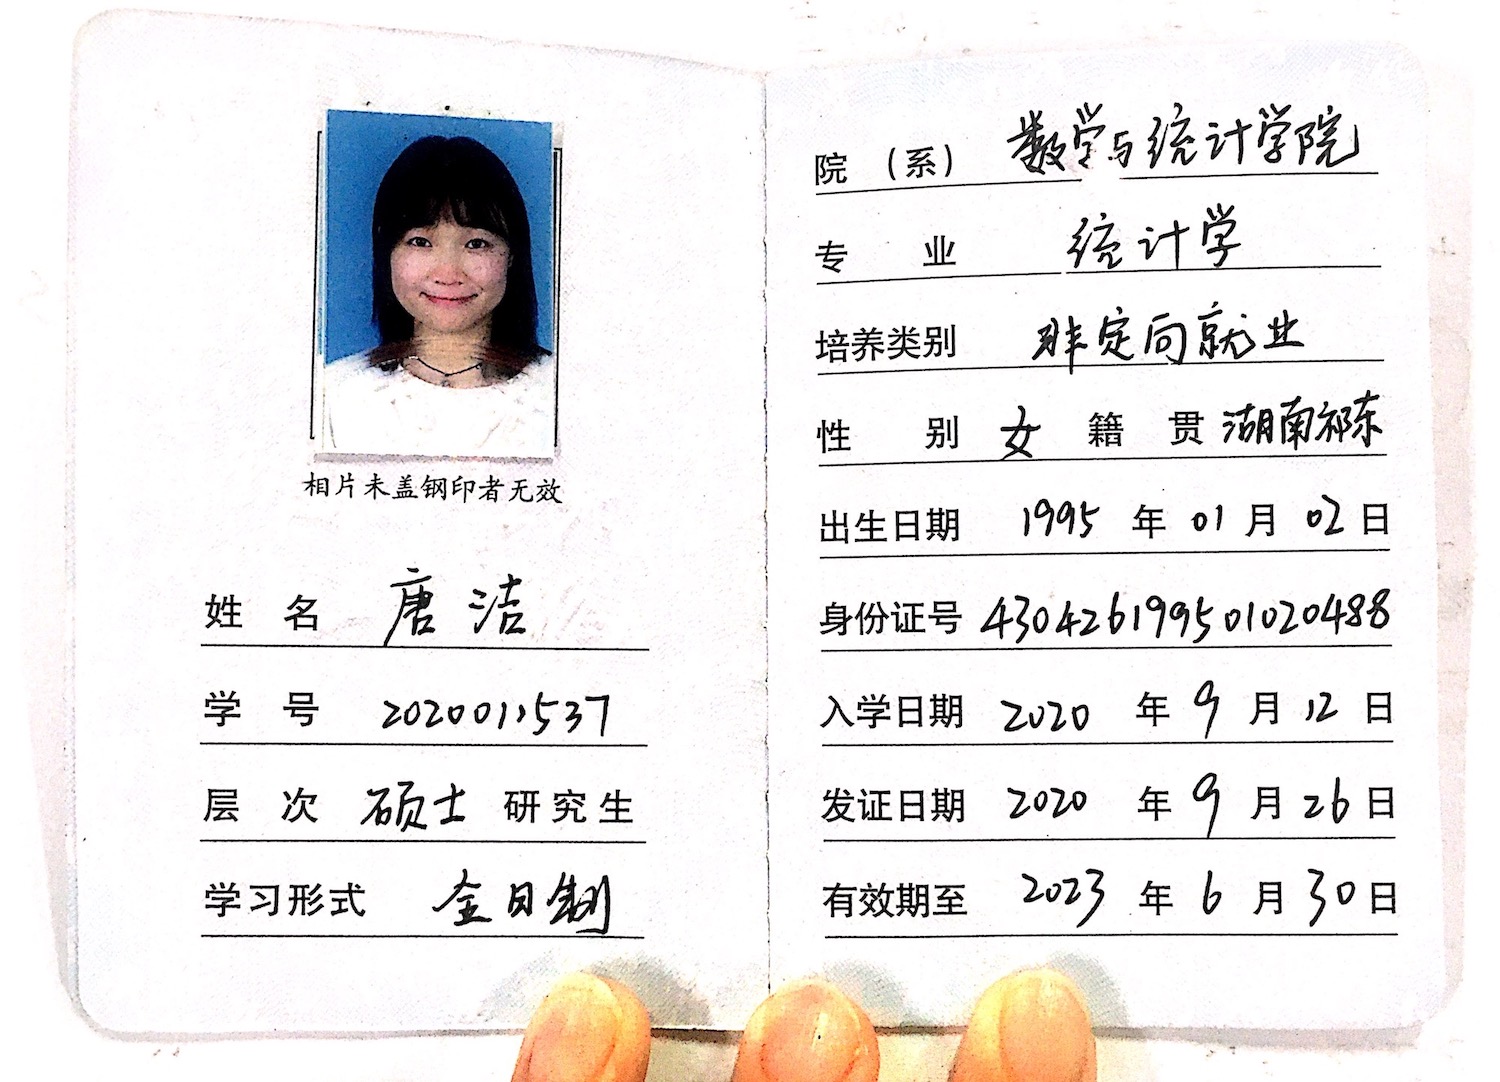 相片未盖钢印者无效
姓名 唐洁
学号 2020011537
层次 硕士 研究生
学习形式 全日制
院（系） 数学与统计学院
专业 统计学
培养类别 非定向就业
性别 女 籍贯 湖南祁东
出生日期 1995 年 01 月 02 日
身份证号 430426199501020488
入学日期 2020 年 9 月 12 日
发证日期 2020 年 9 月 26 日
有效期至 2023 年 6 月 30 日